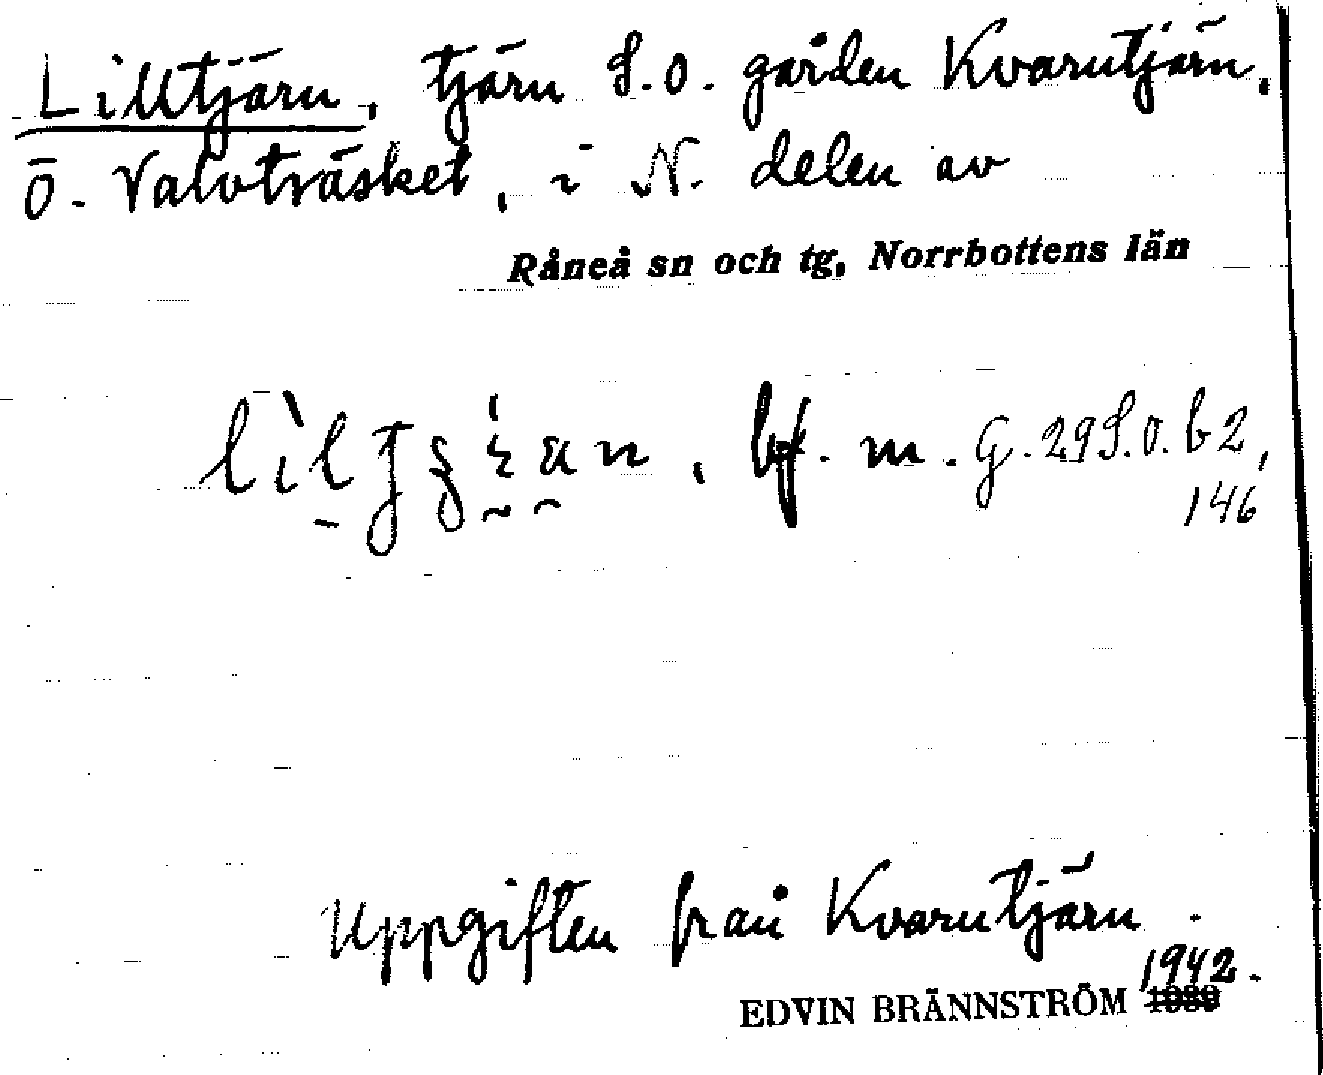 Lilltjärn, tjärn S.O. gården Kvarntjärn,
Ö. Valvträsket, i N. delen av
Råneå sn och tg, Norrbottens län
bf. m. G. 29 S.O. b 2,
146
Uppgiften från Kvarntjärn.
1942.
EDVIN BRÄNNSTRÖM 1939